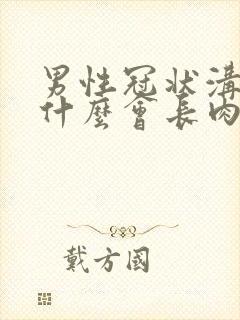 男性冠狀溝
什麼會長肉
戴方國